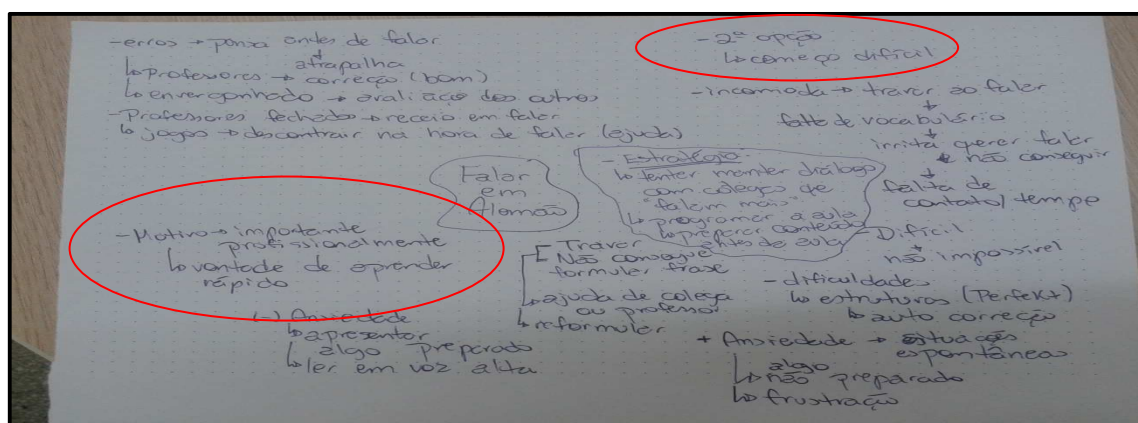 -erros → pensa antes de falar
atrapalha
↳ professores → correção (bom)
↳ envergonhado → avaliação dos outros
- Professores fechados → receio em falar
↳ jogos → descontrair na hora de falar (ajuda)
- 2ª opção
↳ começo difícil
-incomoda → travar ao falar
falta de vocabulário
irrita querer falar
e não conseguir
falta de
contato/tempo
Falar
em
Alemão
- Estratégia:
↳ tentar manter diálogo
com colegas que
"falam mais"
↳ programar a aula
↳ preparar conteúdo
antes da aula
-Motivo → importante
profissionalmente
↳ vontade de aprender
rápido
Travar
Não consegue
formular frase
↳ ajuda de colega
ou professor
↳ reformular
- Difícil
não impossível
- dificuldade
↳ estruturas (Perfekt)
↳ auto correção
(-) Ansiedade
↳ apresentar
algo preparado
↳ ler em voz alta
+ Ansiedade → situações
espontâneas
algo
↳ não preparado
↳ frustração